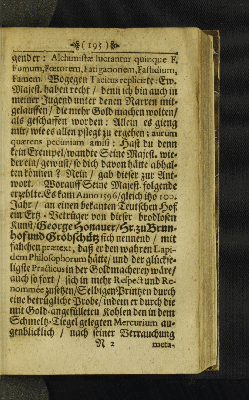 (193)
gender: Alchimistæ luctantur quinque F.
Fumum, Fœtorem, Fatigationem, Fastidium,
Famem. Wogegen Tacitus replicirte: Ew.
Majest. haben recht / denn ich bin auch in
meiner Jugend unter denen Narren mit-
gelauffen / die mehr Gold machen wolten/
als geschaffen worden: Allein es gieng
mir / wie es allen pflegt zu ergehen; aurum
quærens pecuniam amisi: Hast du denn
kein Exempel / wandte Seine Majest. wie-
der ein / gewust / so dich davon hätte abhal-
ten können? Nein / gab dieser zur Ant-
wort. Worauff Seine Majest. folgende
erzehlte. Es kam Anno 1596 / gleich itzo 100.
Jahr / an einen bekanten Teutschen Hof
ein Ertz-Betrüger von dieser brodlosen
Kunst / George Honauer / Hr. zu Brun-
hof und Grobschütz sich nennend / mit
fälschlichen prætext, daß er den wahren Lapi-
dem Philosophorum hätte / und der glückse-
ligste Practicus in der Goldmacherey wäre /
auch so fort / sich in mehr Respect und Re-
nommée zusetzen / Selbigen Printzen durch
eine betrügliche Probe / indem er durch die
mit Gold-angefülleten Kohlen den in dem
Schmeltz-Tiegel gelegten Mercurium au-
genblicklich / nach seiner Vertauschung
N 2 meta-